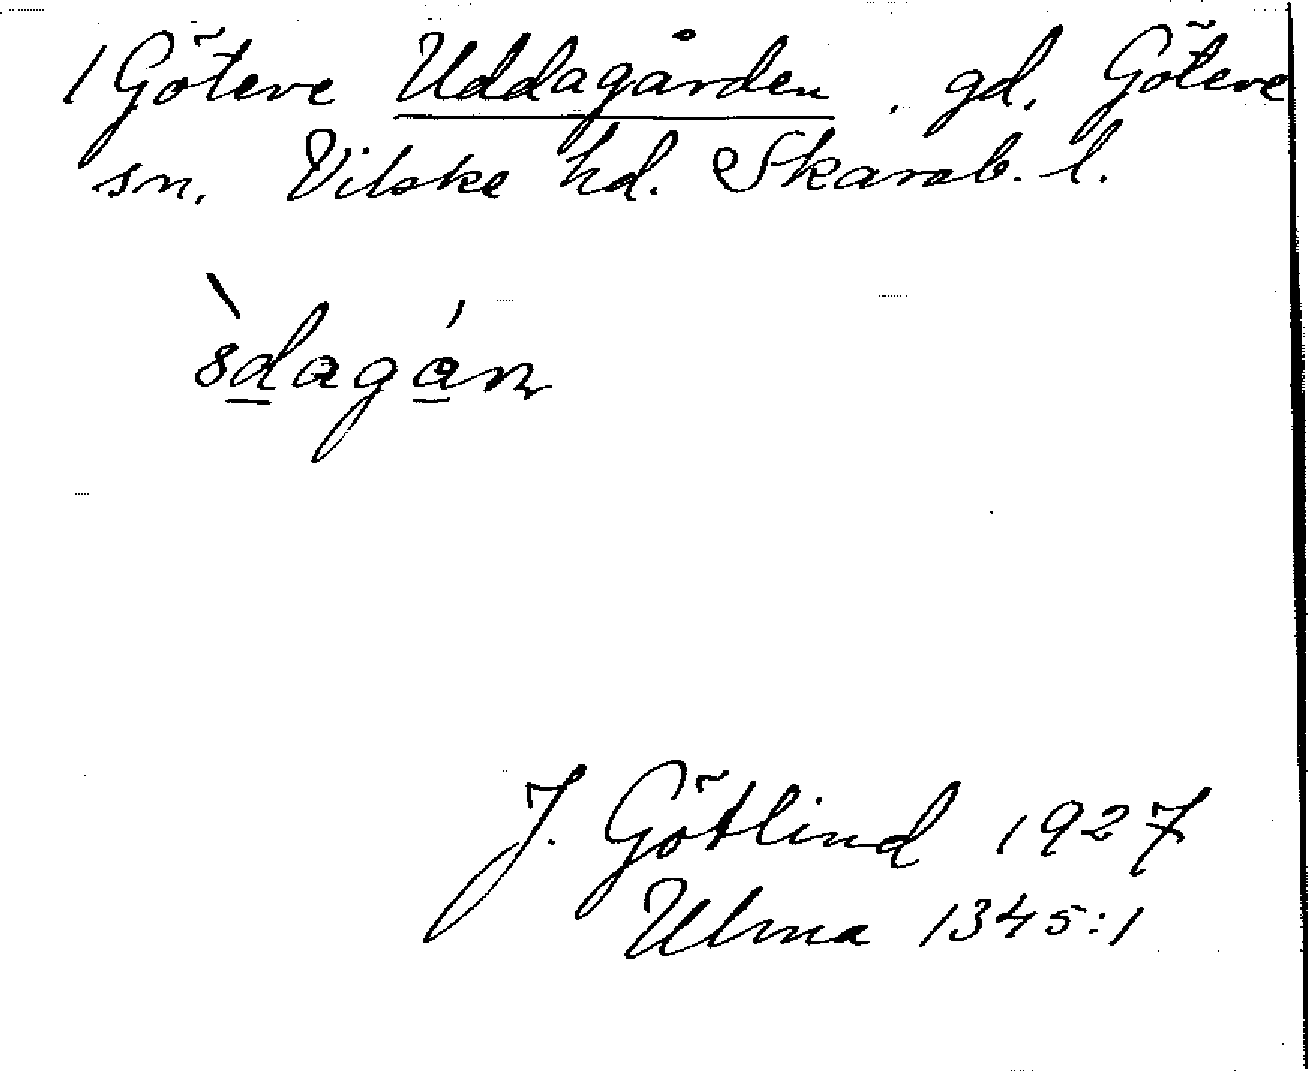 1 Göteve Uddagården, gd. Göteve
sn. Vilske hd. Skarab. l.
J. Götlind 1927
Ulma 1345:1